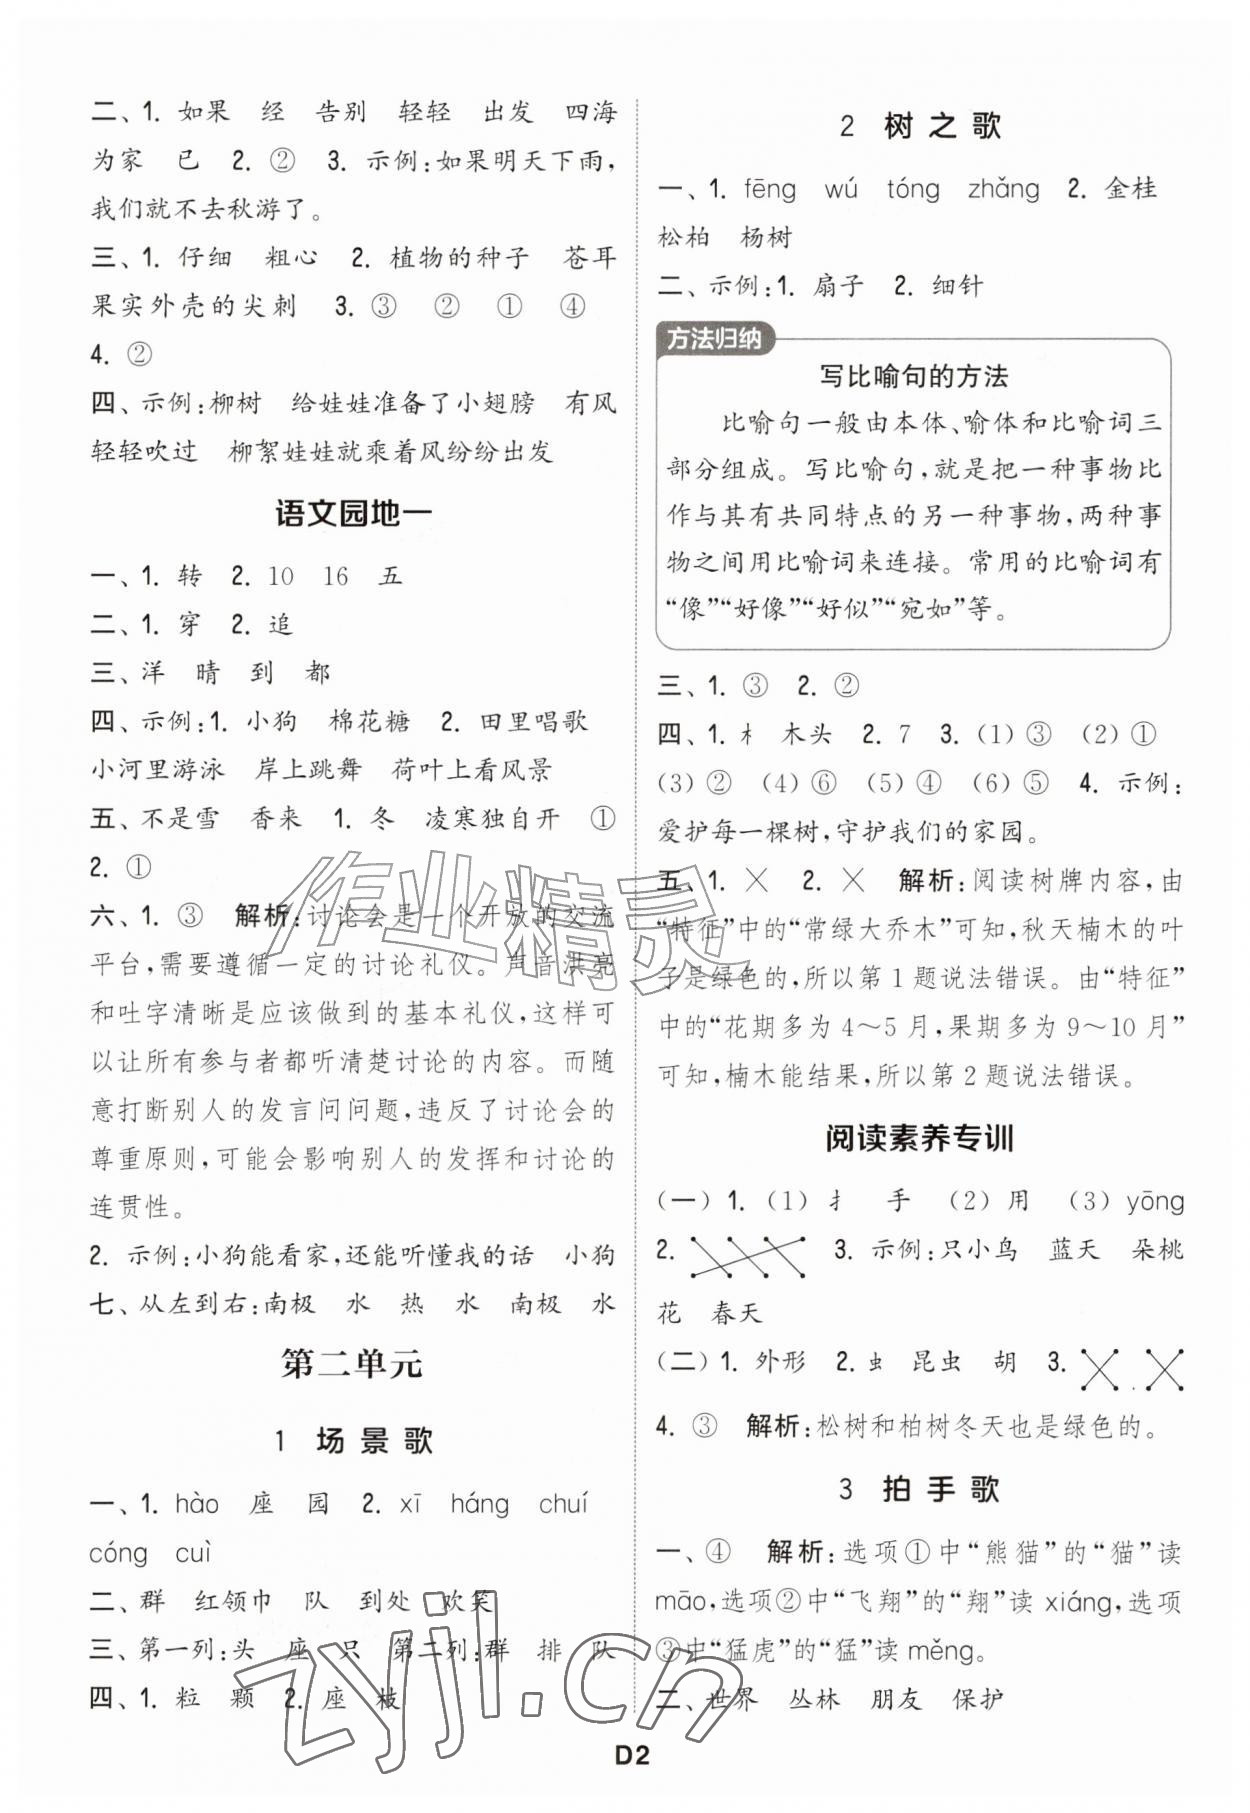 二、1. 如果　经　告别　轻轻　出发　四海
为家　已　2. ②　3. 示例:如果明天下雨,
我们就不去秋游了。
三、1. 仔细　粗心　2. 植物的种子　苍耳
果实外壳的尖刺　3. ③　②　①　④
4. ②
四、示例:柳树　给娃娃准备了小翅膀　有风
轻轻吹过　柳絮娃娃就乘着风纷纷出发
语文园地一
一、1. 转　2. 10　16　五
二、1. 穿　2. 追
三、洋　晴　到　都
四、示例:1. 小狗　棉花糖　2. 田里唱歌
小河里游泳　岸上跳舞　荷叶上看风景
五、不是雪　香来　1. 冬　凌寒独自开　①
2. ①
六、1. ③　解析:讨论会是一个开放的交流
平台,需要遵循一定的讨论礼仪。声音洪亮
和吐字清晰是应该做到的基本礼仪,这样可
以让所有参与者都听清楚讨论的内容。而随
意打断别人的发言问问题,违反了讨论会的
尊重原则,可能会影响别人的发挥和讨论的
连贯性。
2. 示例:小狗能看家,还能听懂我的话　小狗
七、从左到右:南极　水　热　水　南极　水
第二单元
1　场景歌
一、1. hào　座　园　2. xī　háng　chuí
cóng　cuì
二、群　红领巾　队　到处　欢笑
三、第一列:头　座　只　第二列:群　排　队
四、1. 粒　颗　2. 座　枝
2　树之歌
一、1. fēng　wú　tóng　zhǎng　2. 金桂
松柏　杨树
二、示例:1. 扇子　2. 细针
方法归纳
写比喻句的方法
比喻句一般由本体、喻体和比喻词三
部分组成。写比喻句,就是把一种事物比
作与其有共同特点的另一种事物,两种事
物之间用比喻词来连接。常用的比喻词有
“像”“好像”“好似”“宛如”等。
三、1. ③　2. ②
四、1. 木　木头　2. 7　3. (1)③　(2)①
(3)②　(4)⑥　(5)④　(6)⑤　4. 示例:
爱护每一棵树,守护我们的家园。
五、1. ×　2. ×　解析:阅读树牌内容,由
“特征”中的“常绿大乔木”可知,秋天楠木的叶
子是绿色的,所以第1题说法错误。由“特征”
中的“花期多为4～5月,果期多为9～10月”
可知,楠木能结果,所以第2题说法错误。
阅读素养专训
(一)1. (1)扌　手　(2)用　(3)yōng
2.　3. 示例:只小鸟　蓝天　朵桃
花　春天
(二)1. 外形　2. 虫　昆虫　胡　3.
4. ③　解析:松树和柏树冬天也是绿色的。
3　拍手歌
一、④　解析:选项①中“熊猫”的“猫”读
māo,选项②中“飞翔”的“翔”读xiáng,选项
③中“猛虎”的“猛”读měng。
二、世界　丛林　朋友　保护
D2
作业精灵
zyjl.cn